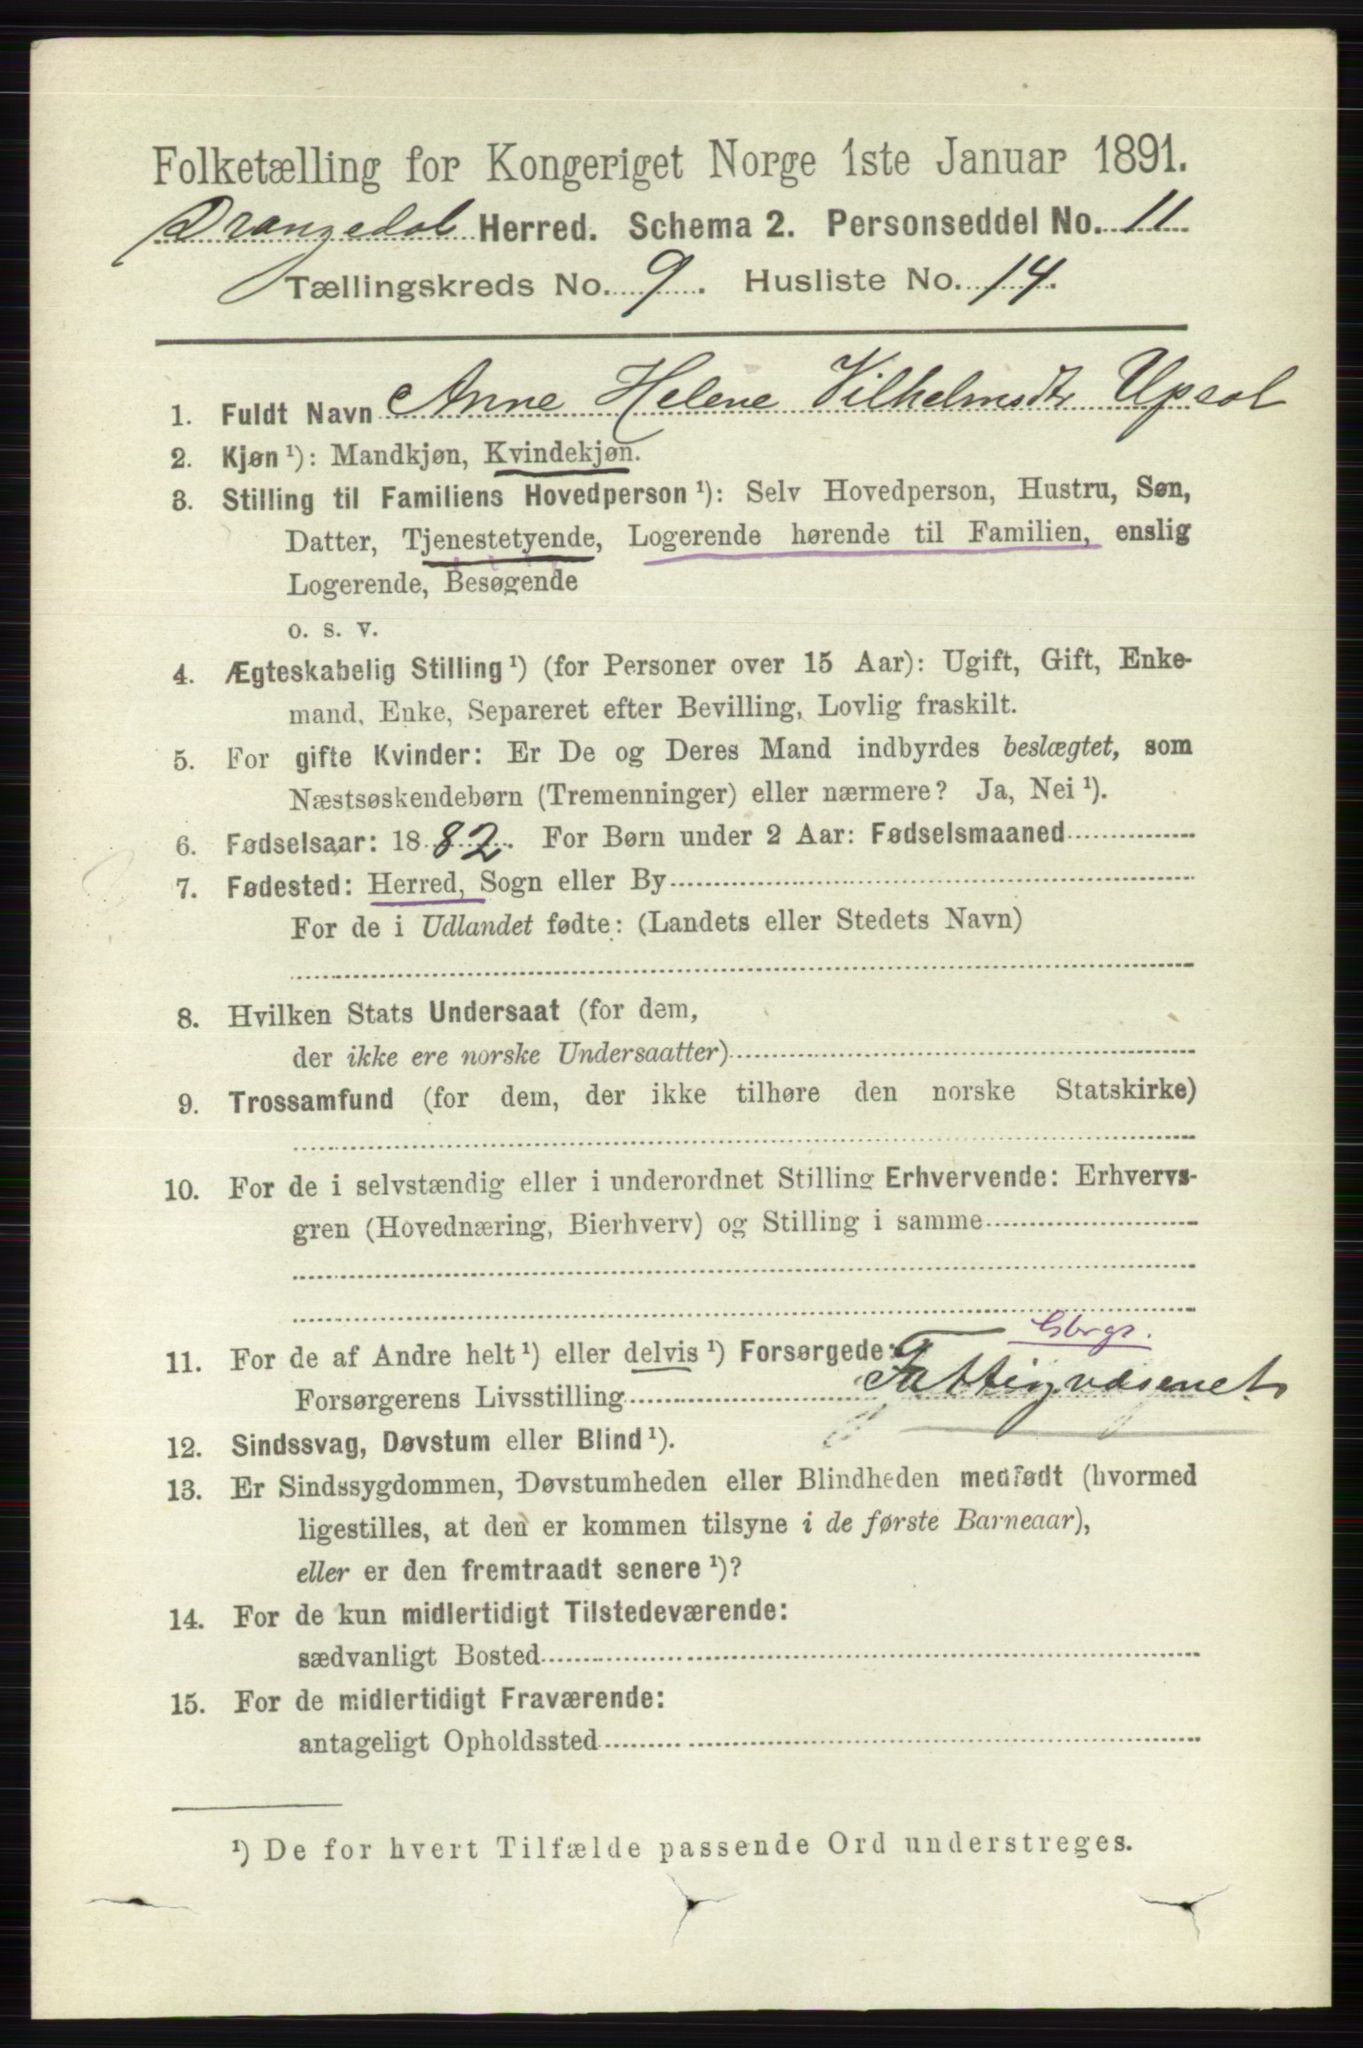 Folketælling for Kongeriget Norge 1ste Januar 1891.
Drangedal Herred. Schema 2. Personseddel No. 11
Tællingskreds No. 9. Husliste No. 14.
1. Fuldt Navn Anne Helene Vilhelmsdtr Upsal
2. Kjøn ¹): Mandkjøn, Kvindekjøn.
3. Stilling til Familiens Hovedperson ¹): Selv Hovedperson, Hustru, Søn,
Datter, Tjenestetyende, Logerende hørende til Familien, enslig
Logerende, Besøgende
o. s. v.
4. Ægteskabelig Stilling ¹) (for Personer over 15 Aar): Ugift, Gift, Enke-
mand, Enke, Separeret efter Bevilling, Lovlig fraskilt.
5. For gifte Kvinder: Er De og Deres Mand indbyrdes beslægtet, som
Næstsøskendebørn (Tremenninger) eller nærmere? Ja, Nei ¹).
6. Fødselsaar: 1882. For Børn under 2 Aar: Fødselsmaaned
7. Fødested: Herred, Sogn eller By
For de i Udlandet fødte: (Landets eller Stedets Navn)
8. Hvilken Stats Undersaat (for dem,
der ikke ere norske Undersaatter)
9. Trossamfund (for dem, der ikke tilhøre den norske Statskirke)
10. For de i selvstændig eller i underordnet Stilling Erhvervende: Erhvervs-
gren (Hovednæring, Bierhverv) og Stilling i samme
11. For de af Andre helt ¹) eller delvis ¹) Forsørgede:
Forsørgerens Livsstilling Fattigvæsenet
12. Sindssvag, Døvstum eller Blind ¹).
13. Er Sindssygdommen, Døvstumheden eller Blindheden medfødt (hvormed
ligestilles, at den er kommen tilsyne i de første Barneaar),
eller er den fremtraadt senere ¹)?
14. For de kun midlertidigt Tilstedeværende:
sædvanligt Bosted
15. For de midlertidigt Fraværende:
antageligt Opholdssted
¹) De for hvert Tilfælde passende Ord understreges.